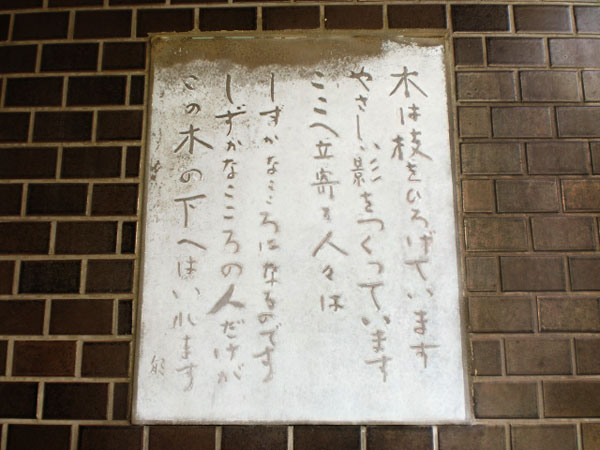 木は枝をひろげています
やさしい影をつくっています
ここへ立寄る人々は
しずかなこころになるのです
しずかなこころの人だけが
この木の下へはいれます